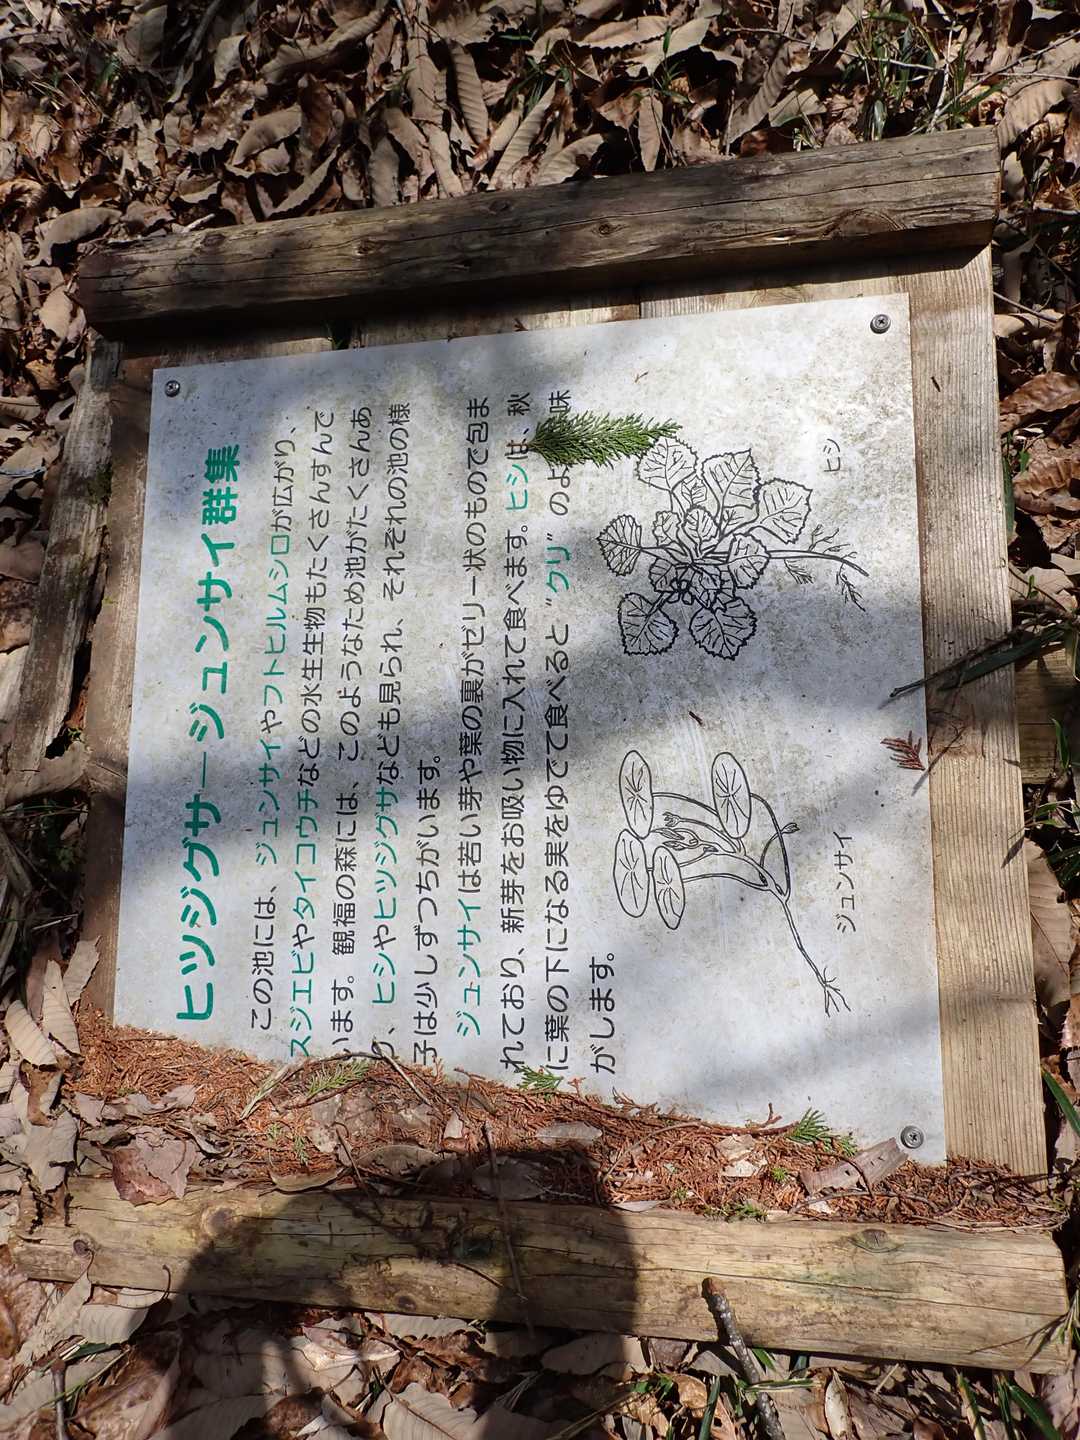 ヒツジグサージュンサイ群集
この池には、ジュンサイやフトヒルムシロが広がり、
スジエビやタイコウチなどの水生生物もたくさんすんで
います。観福の森には、このようなため池がたくさんあ
り、ヒシやヒツジグサなども見られ、それぞれの池の様
子は少しずつちがいます。
ジュンサイは若い芽や葉の裏がゼリー状のもので包ま
れており、新芽をお吸い物に入れて食べます。ヒシは、秋
に葉の下になる実をゆでて食べると“クリ”のよ 味
がします。
ジュンサイ
ヒシ